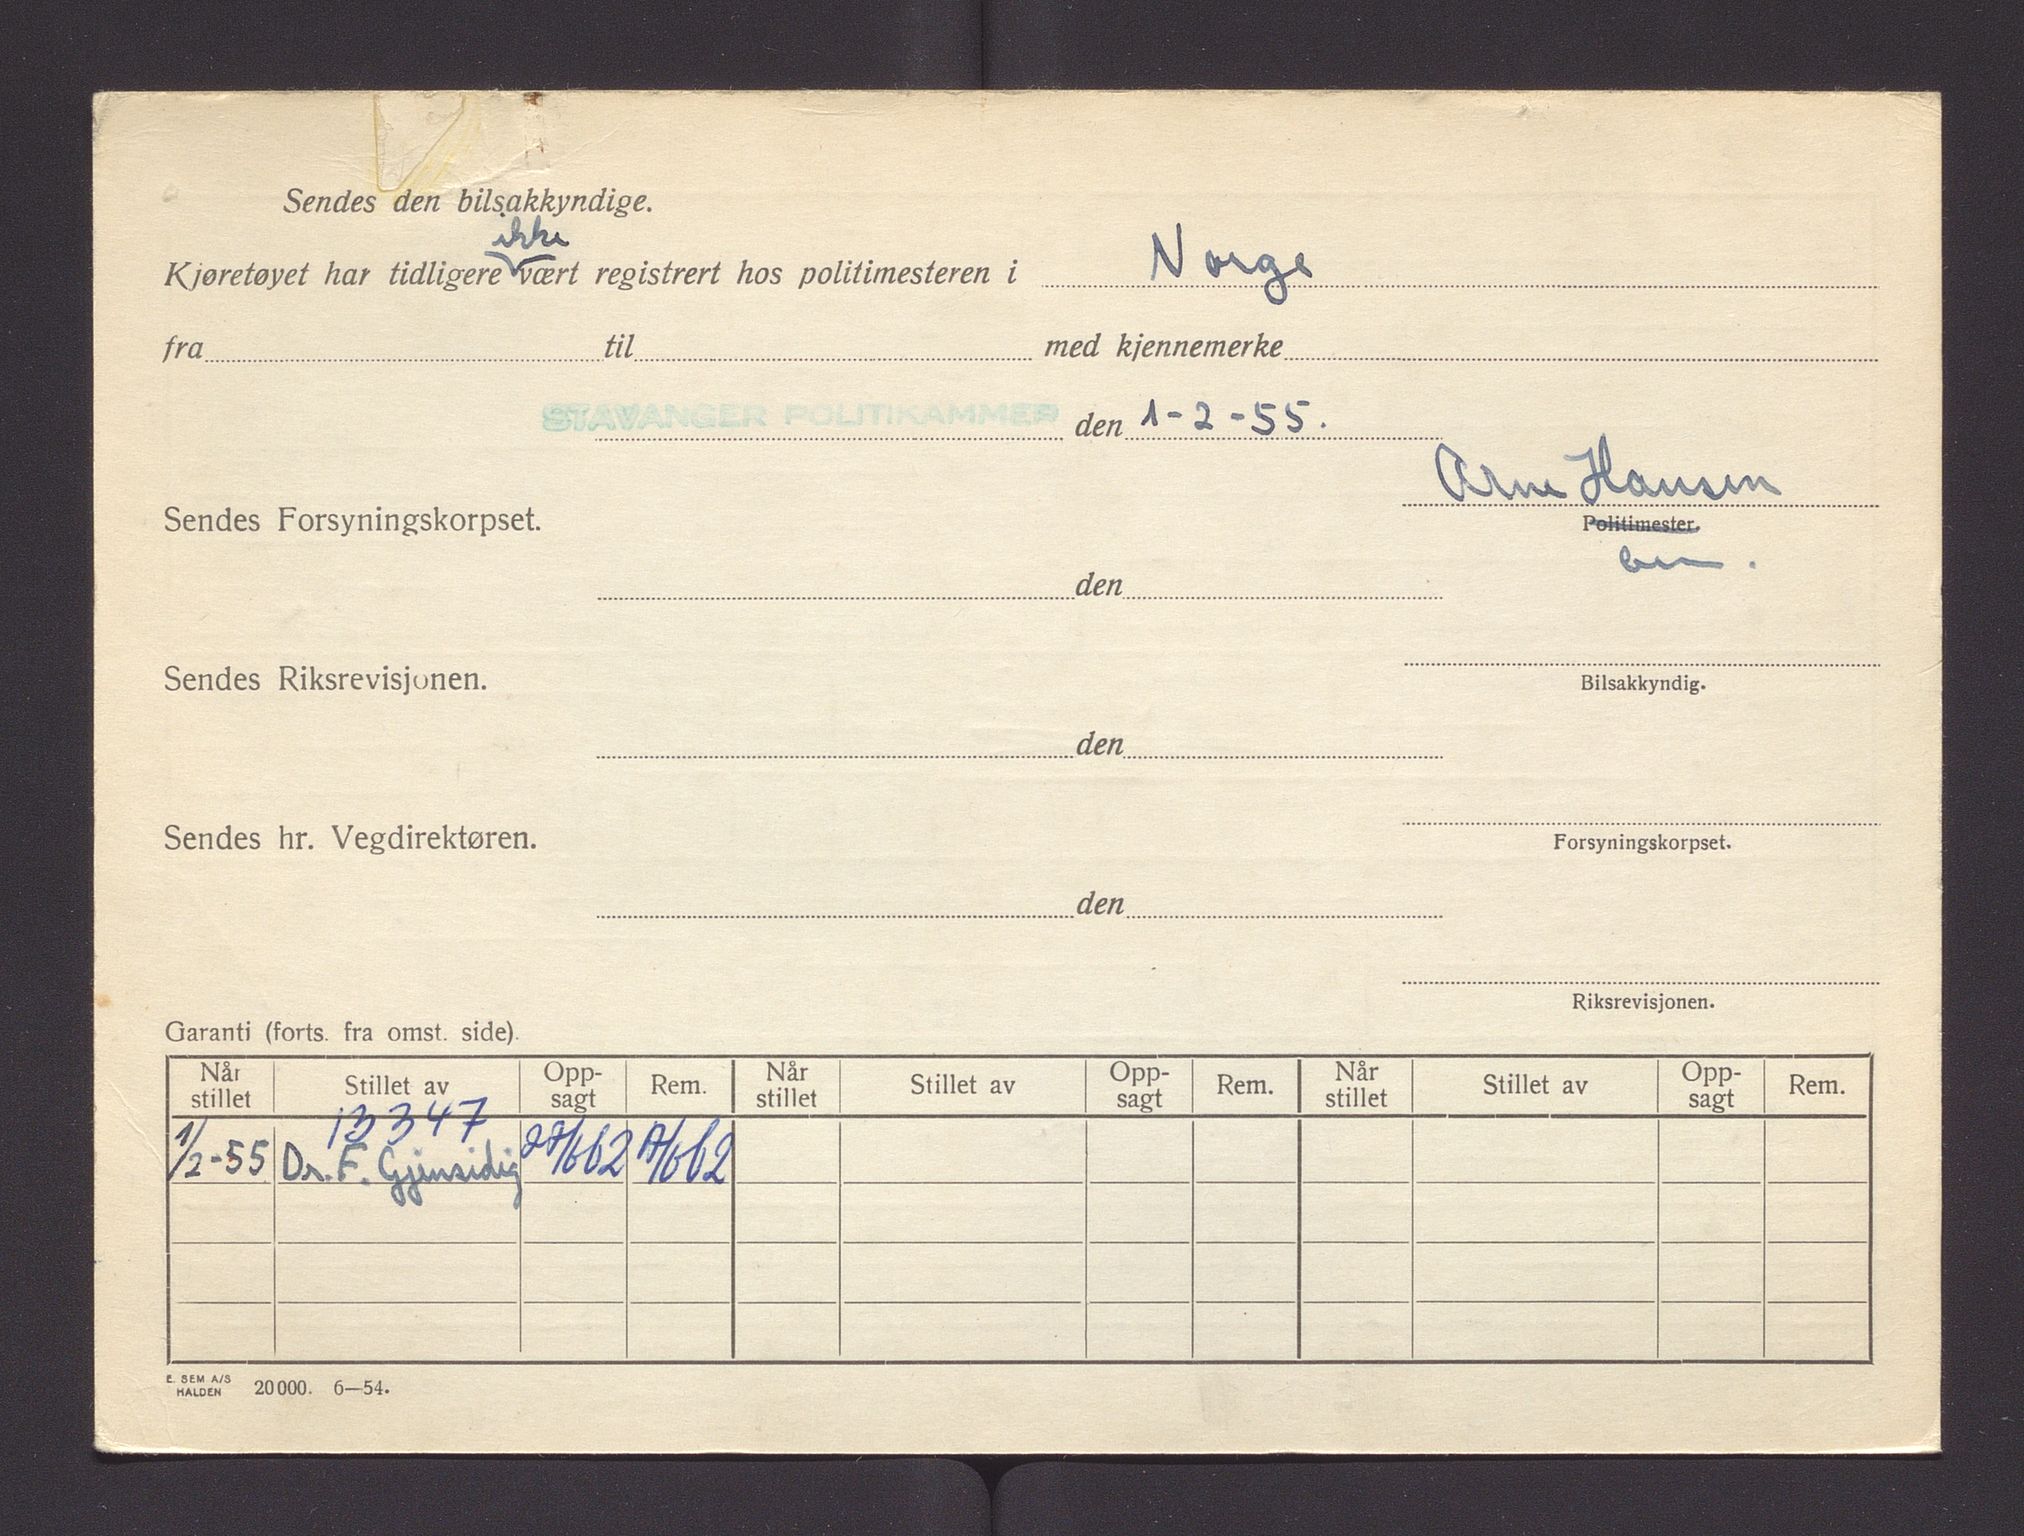 Sendes den bilsakkyndige.
ikke
Kjøretøyet har tidligere vært registrert hos politimesteren i Norge
fra til med kjennemerke
STAVANGER POLITIKAMMER den 1-2-55.
Arne Hansen
Sendes Forsyningskorpset. Politimester.
den
Sendes Riksrevisjonen. Bilsakkyndig.
den
Sendes hr. Vegdirektøren. Forsyningskorpset.
den
Riksrevisjonen.
Garanti (forts. fra omst. side).
Når stillet Stillet av Opp-sagt Rem. Når stillet Stillet av Opp-sagt Rem. Når stillet Stillet av Opp-sagt Rem.
13347
1/2-55 Dr. F. Gjensidig
E. SEM A/S
HALDEN 20000. 6—54.